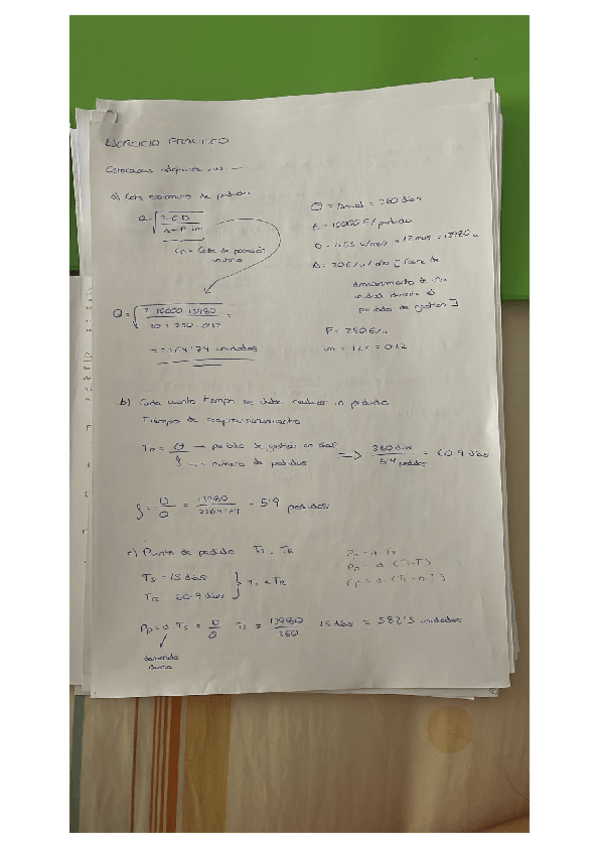 EJERCICIO PRACTICO
a) Lote economico de pedido.
Q = √(2·E·D / A+P·im)
Cp = Coste de posesión
unitario
Θ = Anual = 360 dias
E = 10000 € / pedido
D = 1165 u/mes x 12 mes = 13980 u
A = 20 € / u / año [Coste de
almacenamiento de una
unidad durante el
periodo de gestion]
P = 250 € /u
im = 12% = 0'12
Q = √(2·10000·13980 / 20 + 250·0'12) =
= 2364'74 unidades
b) Cada cuanto tiempo se debe realizar un pedido
Tiempo de reaprovisionamiento
TR = Θ → periodo de gestión
→ número de pedidos
⇒ 360 dias / 5'9 pedidos = 60'9 dias
= D / Q = 13980 / 2364'74 = 5'9 pedidos
c) Punto de pedido TS TR
TS = 15 dias
TR = 60'9 dias } TS < TR
Pp = d · TS = D / Θ · TS = 13980 / 360 · 15 dias = 582'5 unidades
demanda
diaria